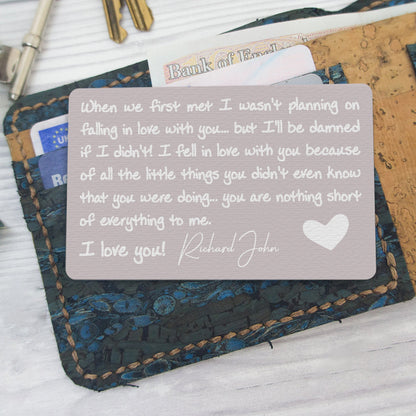 Bank of En
When we first met I wasn't planning on
falling in love with you... but I'll be damned
if I didn't! I fell in love with you because
of all the little things you didn't even know
that you were doing... you are nothing short
of everything to me.
I love you! Richard John